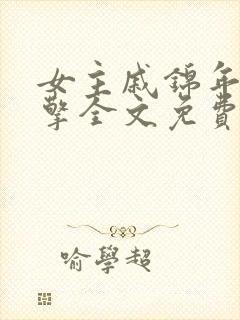 女主戚錦年
擎全文免費
喻學超